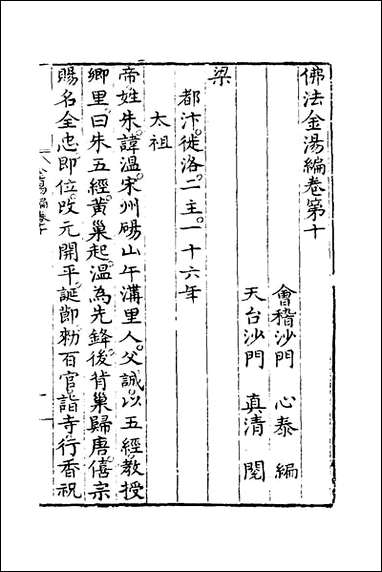 佛法金湯編卷第十
會稽沙門　心泰　編
天台沙門　真清　閱
梁
都汴。徙洛。二主。一十六年
太祖
帝姓朱。諱溫。宋州碭山午溝里人。父誠。以五經教授
鄉里。曰朱五經。黃巢起。溫為先鋒。後背巢歸唐。僖宗
賜名全忠。即位。改元開平。誕節。勑百官詣寺行香祝